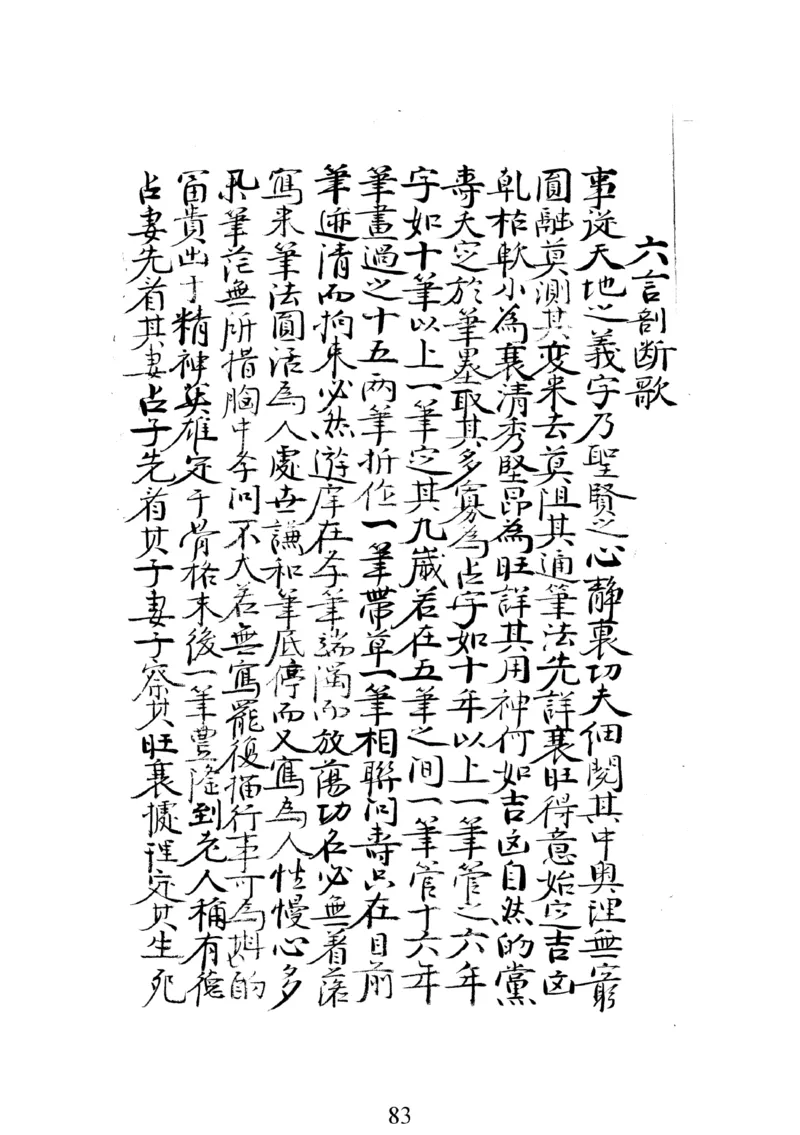 六言剖断歌
事從天地之義字乃聖賢之心靜裏功夫細閱其中奧理無窮
圓融莫測其变来去莫阻其通筆法先詳衰旺得意始定吉凶
軋枯軟小為衰清秀堅昂為旺詳其用神何如吉凶自然的黨
壽夭定於筆墨取其多寡為占字如十年以上一筆管之六年
字如十筆以上一筆定其九歲若在五筆之间一筆管十六年
筆畫過之十五两筆折作一筆帶草一筆相聯问壽只在目前
筆迹清而拘束必然遊庠在李筆端濁而放蕩功名必無着落
寫来筆法圓活為人處世謙和筆底停而又寫為人性慢心多
凡筆茫無所措胸中李问不大若無寫罷復描行事可為斟酌
富貴出于精神英雄定于骨格末後一筆豊隆到老人稱有德
占妻先看其妻占子先看其子妻子察其旺衰據理定其生死
83